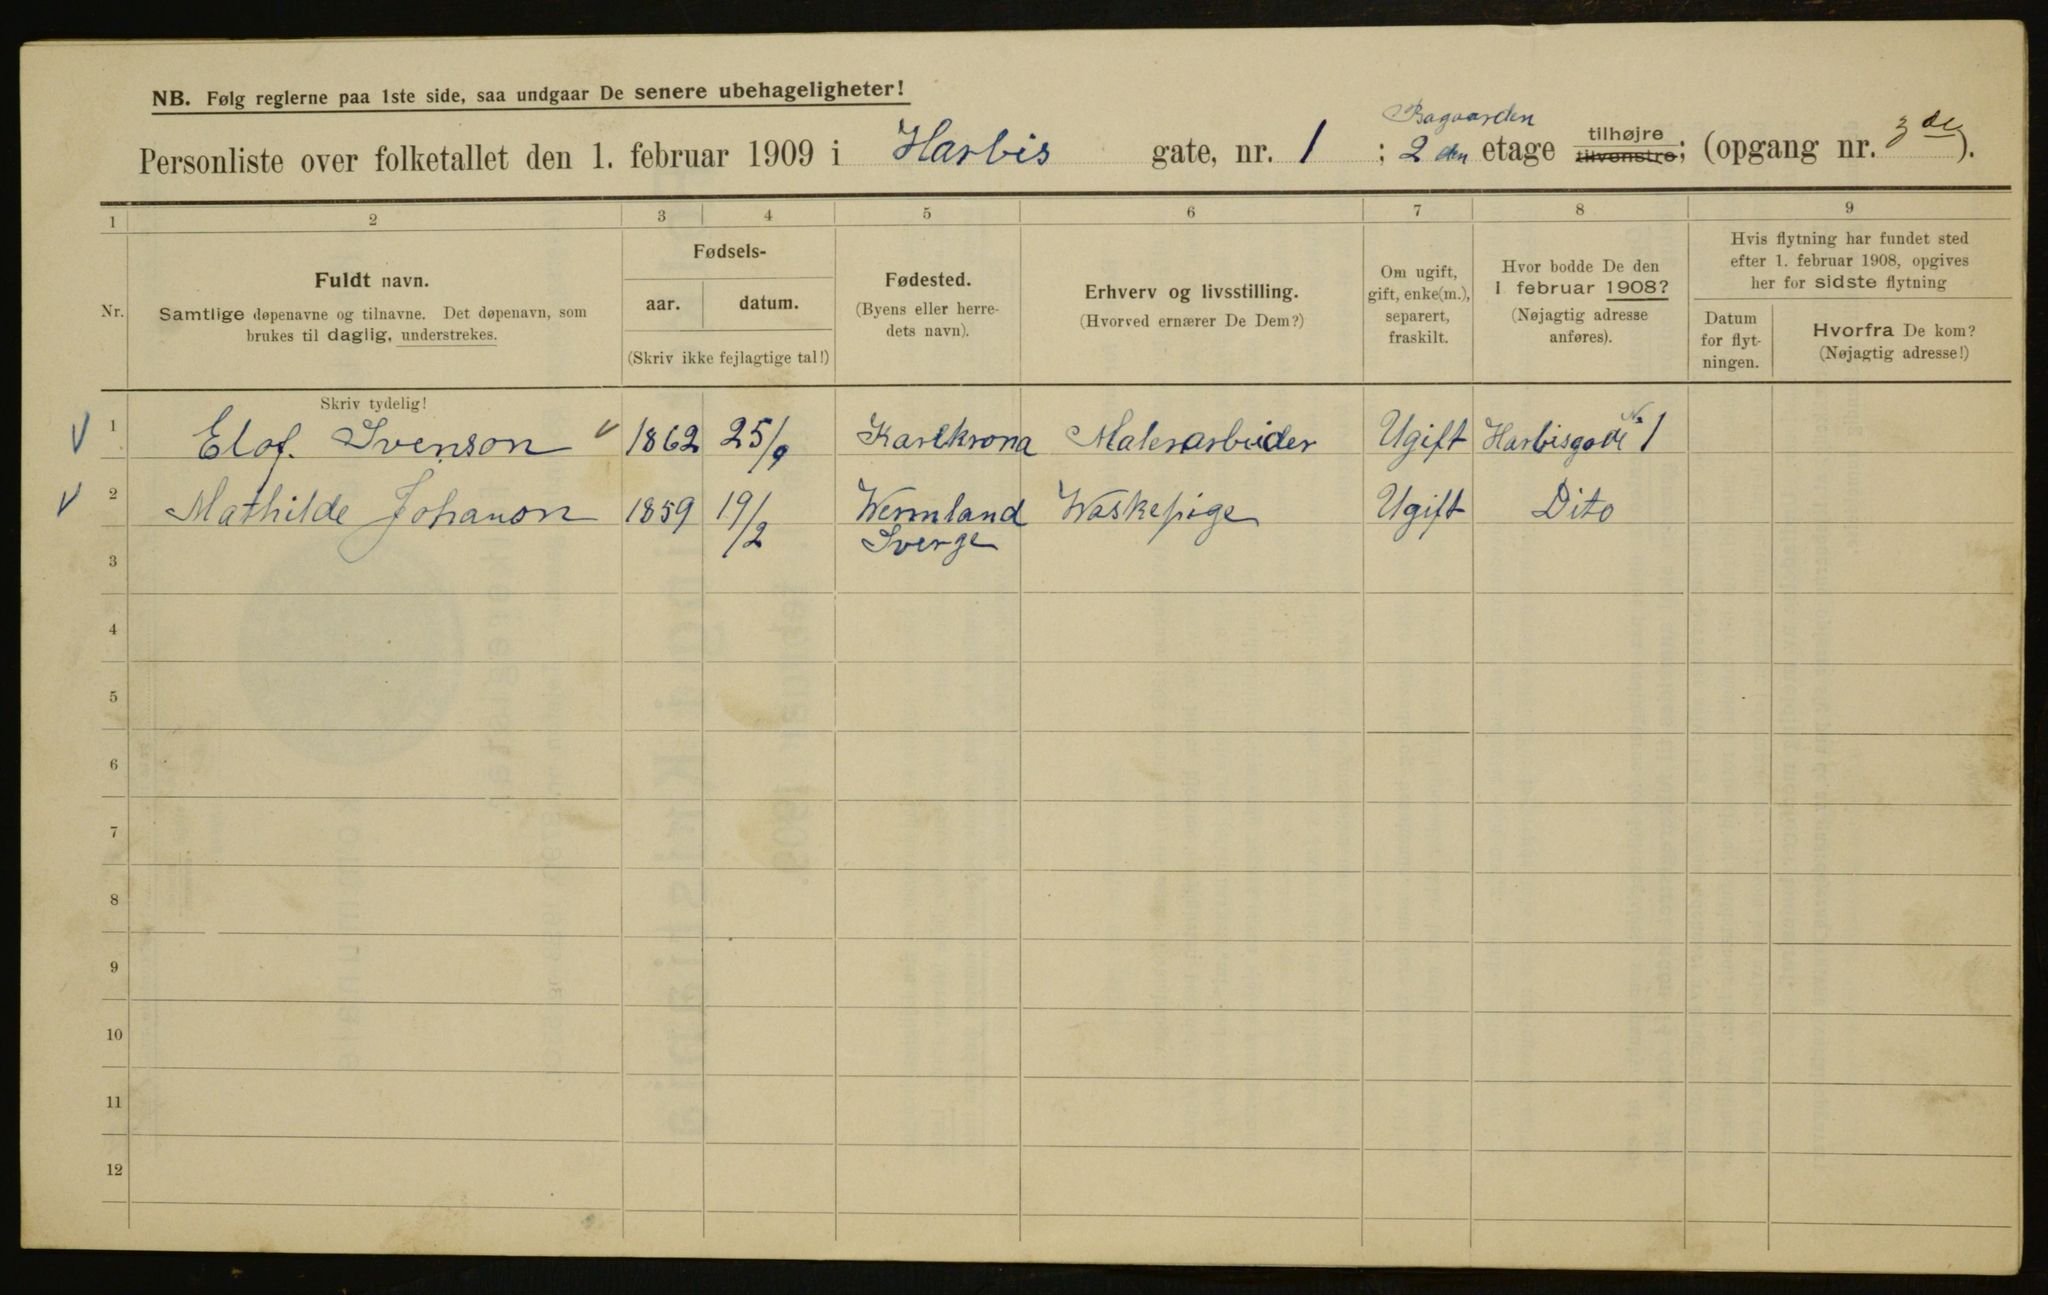 NB. Følg reglerne paa 1ste side, saa undgaar De senere ubehageligheter!
Bagaarden
Personliste over folketallet den 1. februar 1909 i Harbis gate, nr. 1 ; 2 den etage tilhøjre tilvenstre; (opgang nr. 3 de ).
1 2 3 4 5 6 7 8 9
Nr.
Fuldt navn.
Samtlige døpenavne og tilnavne. Det døpenavn, som
brukes til daglig, understrekes.
Fødsels-
aar. datum.
(Skriv ikke fejlagtige tal!)
Fødested.
(Byens eller herre-
dets navn).
Erhverv og livsstilling.
(Hvorved ernærer De Dem?)
Om ugift,
gift, enke(m.),
separert,
fraskilt.
Hvor bodde De den
1 februar 1908?
(Nøjagtig adresse
anføres).
Hvis flytning har fundet sted
efter 1. februar 1908, opgives
her for sidste flytning
Datum
for flyt-
ningen.
Hvorfra De kom?
(Nøjagtig adresse!)
Skriv tydelig!
1 Elof. Svenson 1862 25/9 Karlkrona Malerarbeider Ugift Harbisgade No 1
2 Mathilde Johanson 1859 19/2 Wermland Waskepige Ugift Dito
Sverge
3
4
5
6
7
8
9
10
11
12